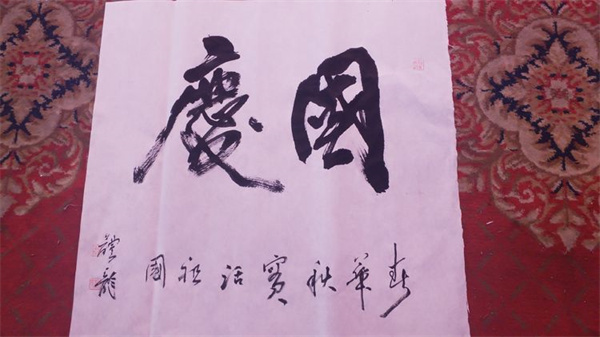 國慶
春華秋實話祖國
龍